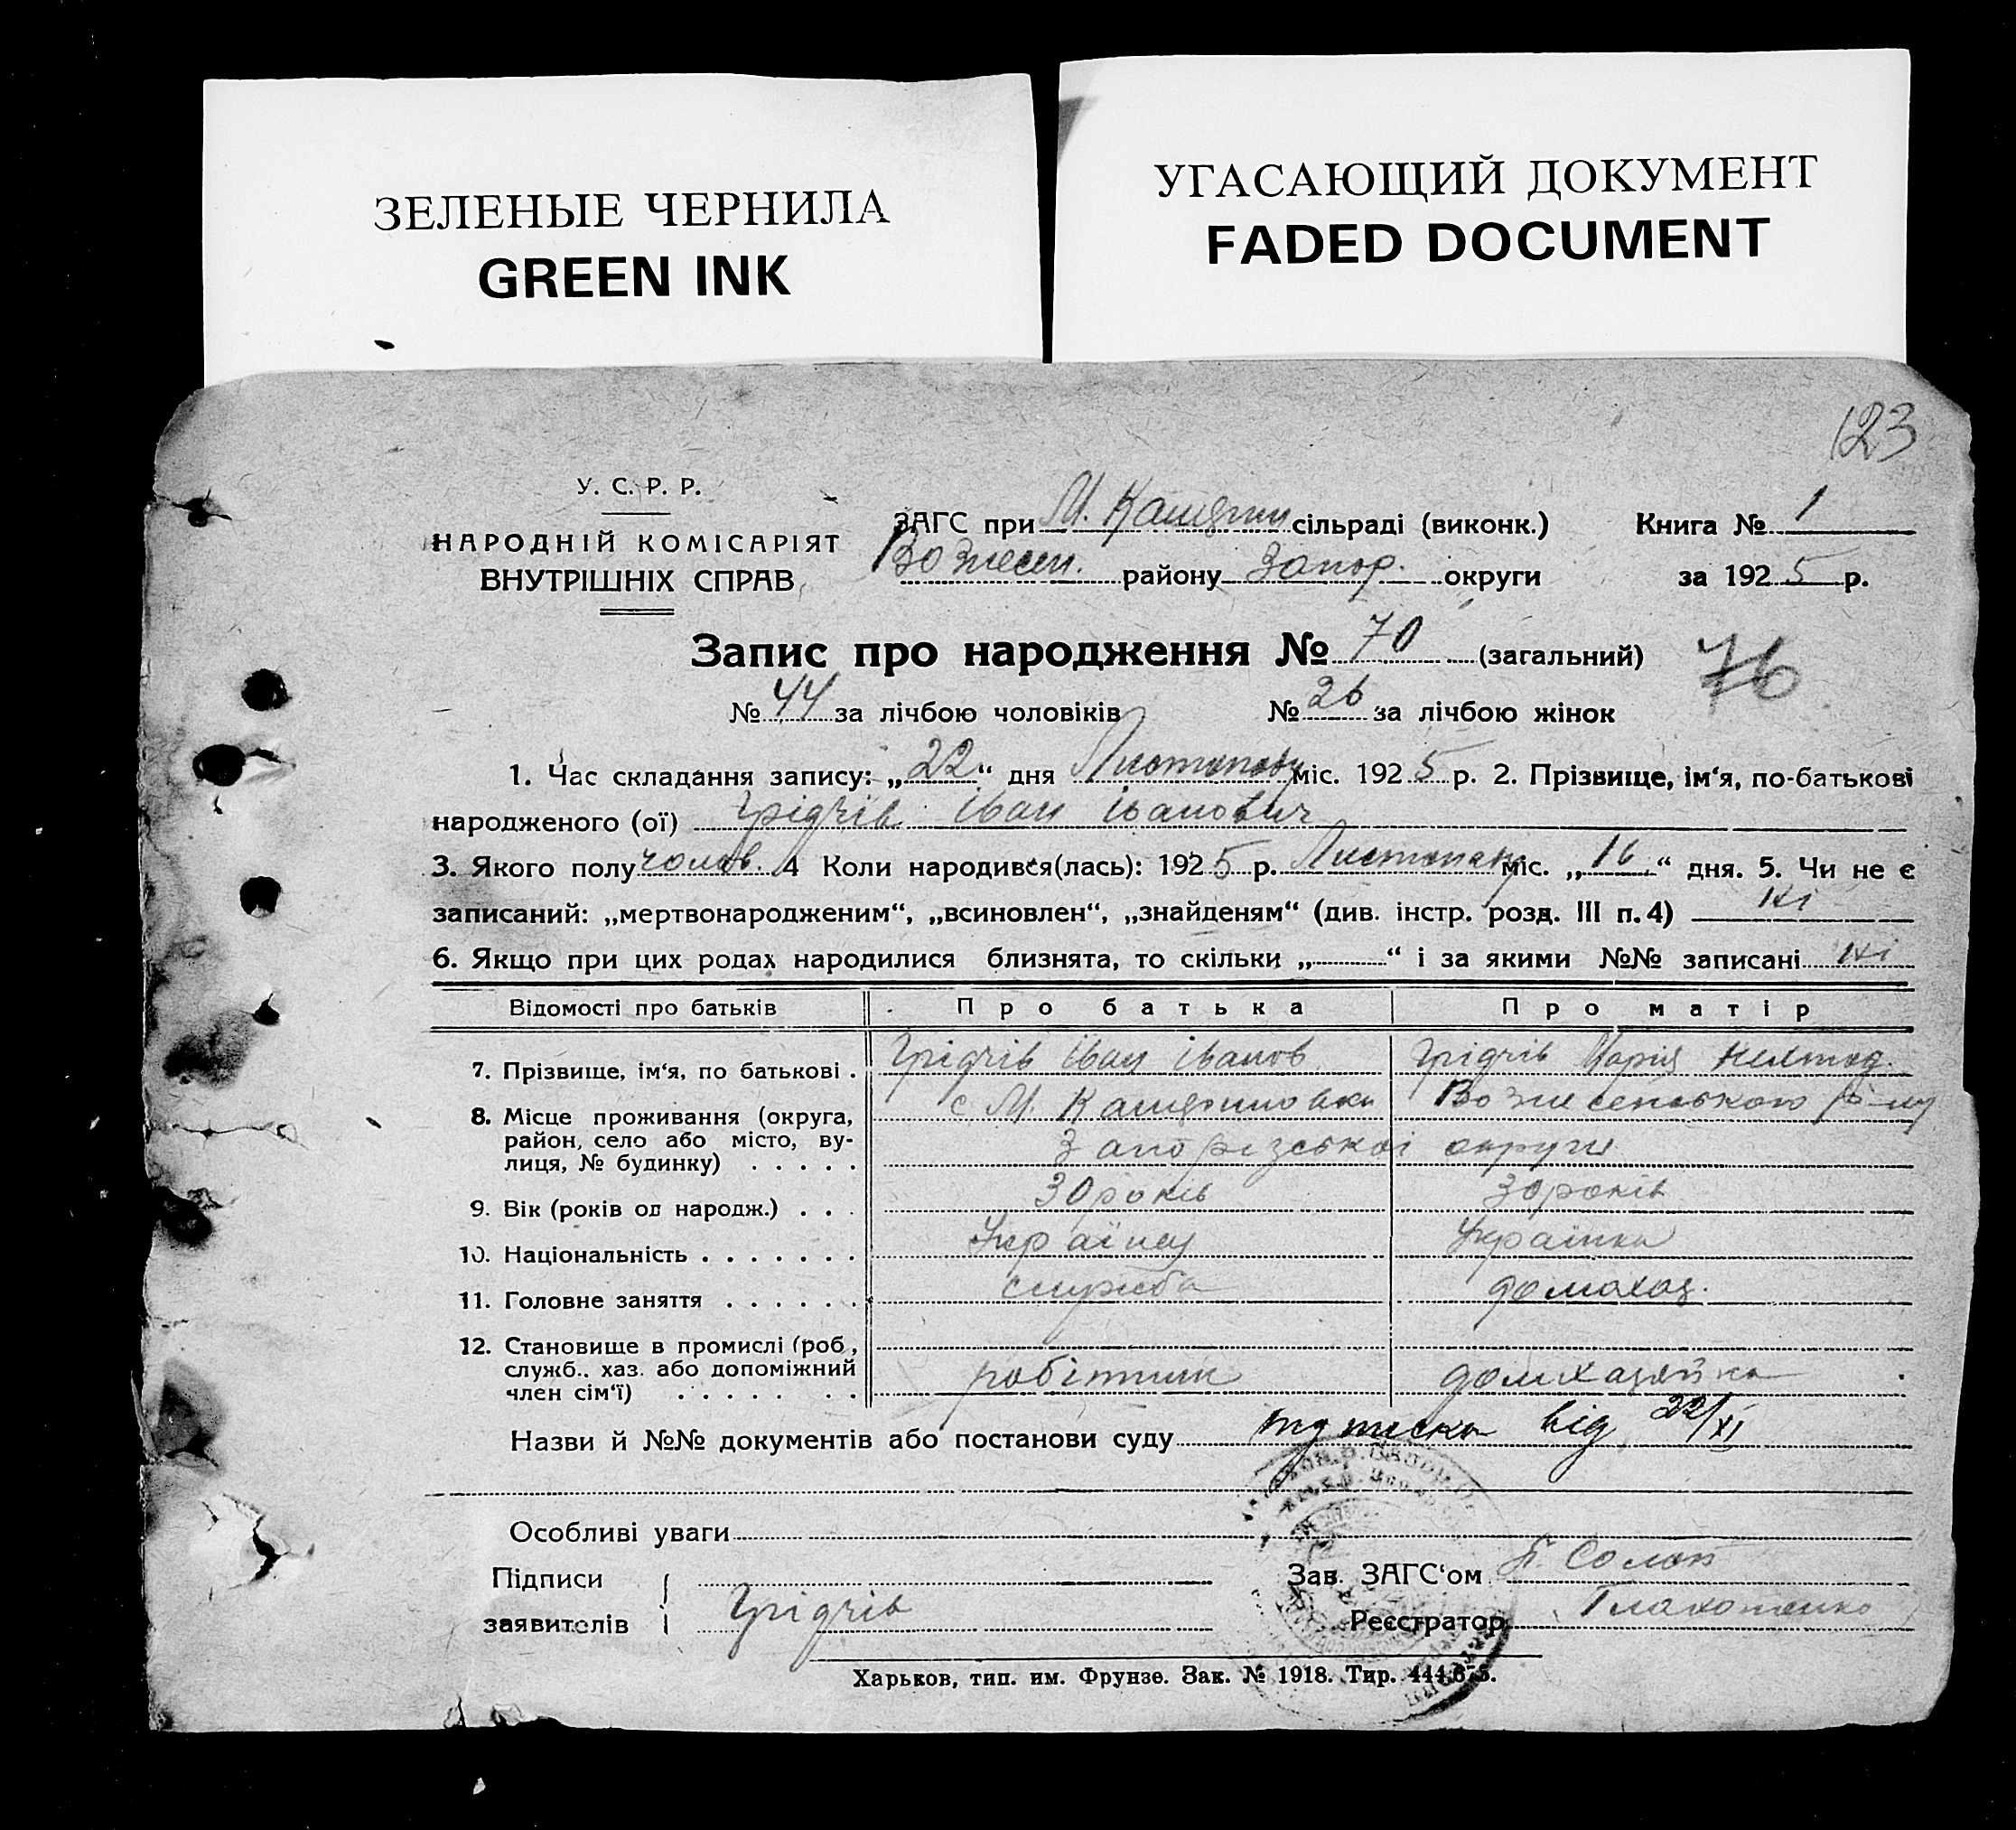 ЗЕЛЕНЫЕ ЧЕРНИЛА
GREEN INK
УГАСАЮЩИЙ ДОКУМЕНТ
FADED DOCUMENT
123
У. С. Р. Р.
НАРОДНІЙ КОМІСАРІЯТ
ВНУТРІШНІХ СПРАВ
ЗАГС при М. сільраді (виконк.) Книга № 1
Вознесен. району Запор. округи за 1925 р.
Запис про народження № 70 (загальний)
76
№ 44 за лічбою чоловіків № 26 за лічбою жінок
1. Час складання запису: „22“ дня Листопаду міс. 1925 р. 2. Прізвище, ім‘я, по-батькові
народженого (ої) Грідчів Іван Іванович
3. Якого полу чолов. 4 Коли народився(лась): 1925 р. Листопаду міс. „16“ дня. 5. Чи не є
записаний: „мертвонародженим“, „всиновлен“, „знайденям“ (див. інстр. розд. III п. 4) Ні
6. Якщо при цих родах народилися близнята, то скільки „ “ і за якими №№ записані ні
Відомості про батьків Про батька Про матір
7. Прізвище, ім‘я, по батькові . Грідчів Іван Іванов. Грідчів Марія
8. Місце проживання (округа, район, село або місто, вулиця, № будинку) . . . . . с М. Вознесенського
Запорізської округи
9. Вік (років од народж.) . . . 30 років 30 років
10. Національність . . . . . . . Українец Українка
11. Головне заняття . . . . . . служба домохоз.
12. Становище в промислі (роб., служб., хаз. або допоміжний член сім‘ї) . . . . . . . робітник домхазяйка
Назви й №№ документів або постанови суду від 22/XI
Особливі уваги
Підписи
заявителів Грідчів
Зав. ЗАГС‘ом
Реєстратор
Харьков, тип. им. Фрунзе. Зак. № 1918. Тир.